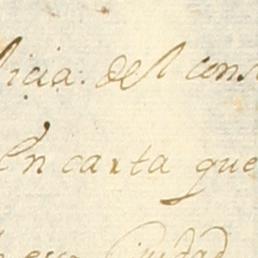 licia. del cons
En carta que
Ciudad